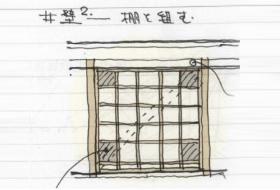 #壁2 ― 棚と組む